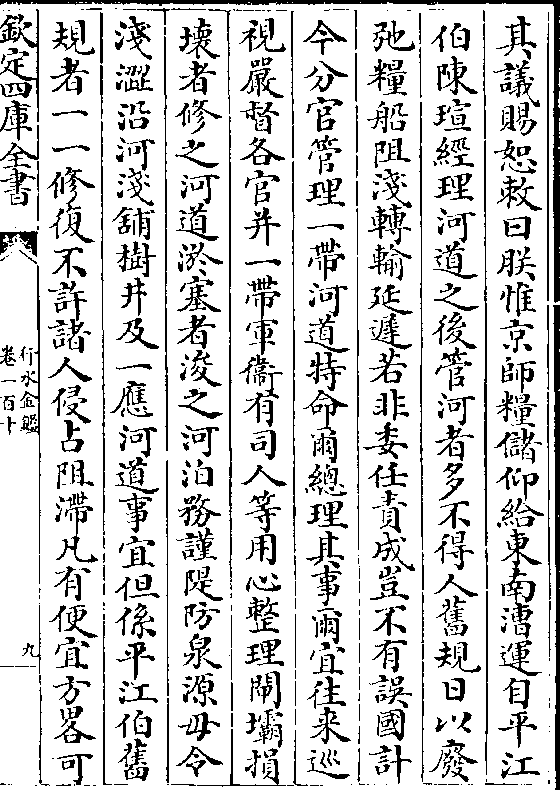 其議賜恕敕曰朕惟京師糧儲仰給東南漕運自平江
伯陳瑄經理河道之後管河者多不得人舊規日以廢
弛糧船阻淺轉輸延遲若非委任責成豈不有誤國計
今分官管理一帶河道特命爾總理其事爾宜往來巡
視嚴督各官并一帶軍衞有司人等用心整理閘壩損
壞者修之河道淤塞者浚之河泊務謹隄防泉源毋令
淺澀沿河淺舖樹井及一應河道事宜但係平江伯舊
規者一一修復不許諸人侵占阻滯凡有便宜方畧可
欽定四庫全書
行水金鑑
卷一百十
九